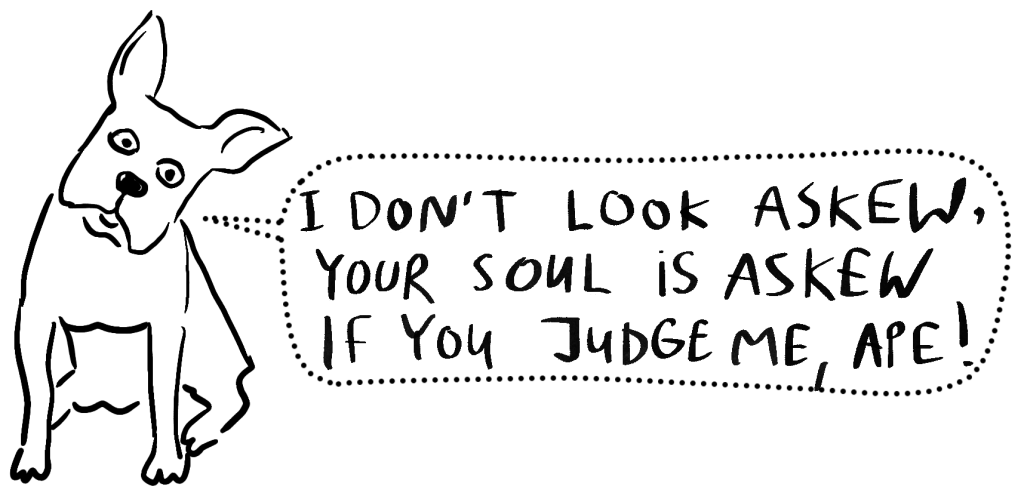 I DON'T LOOK ASKEW,
YOUR SOUL iS ASKEW
IF YOU JUDGE ME, APE!